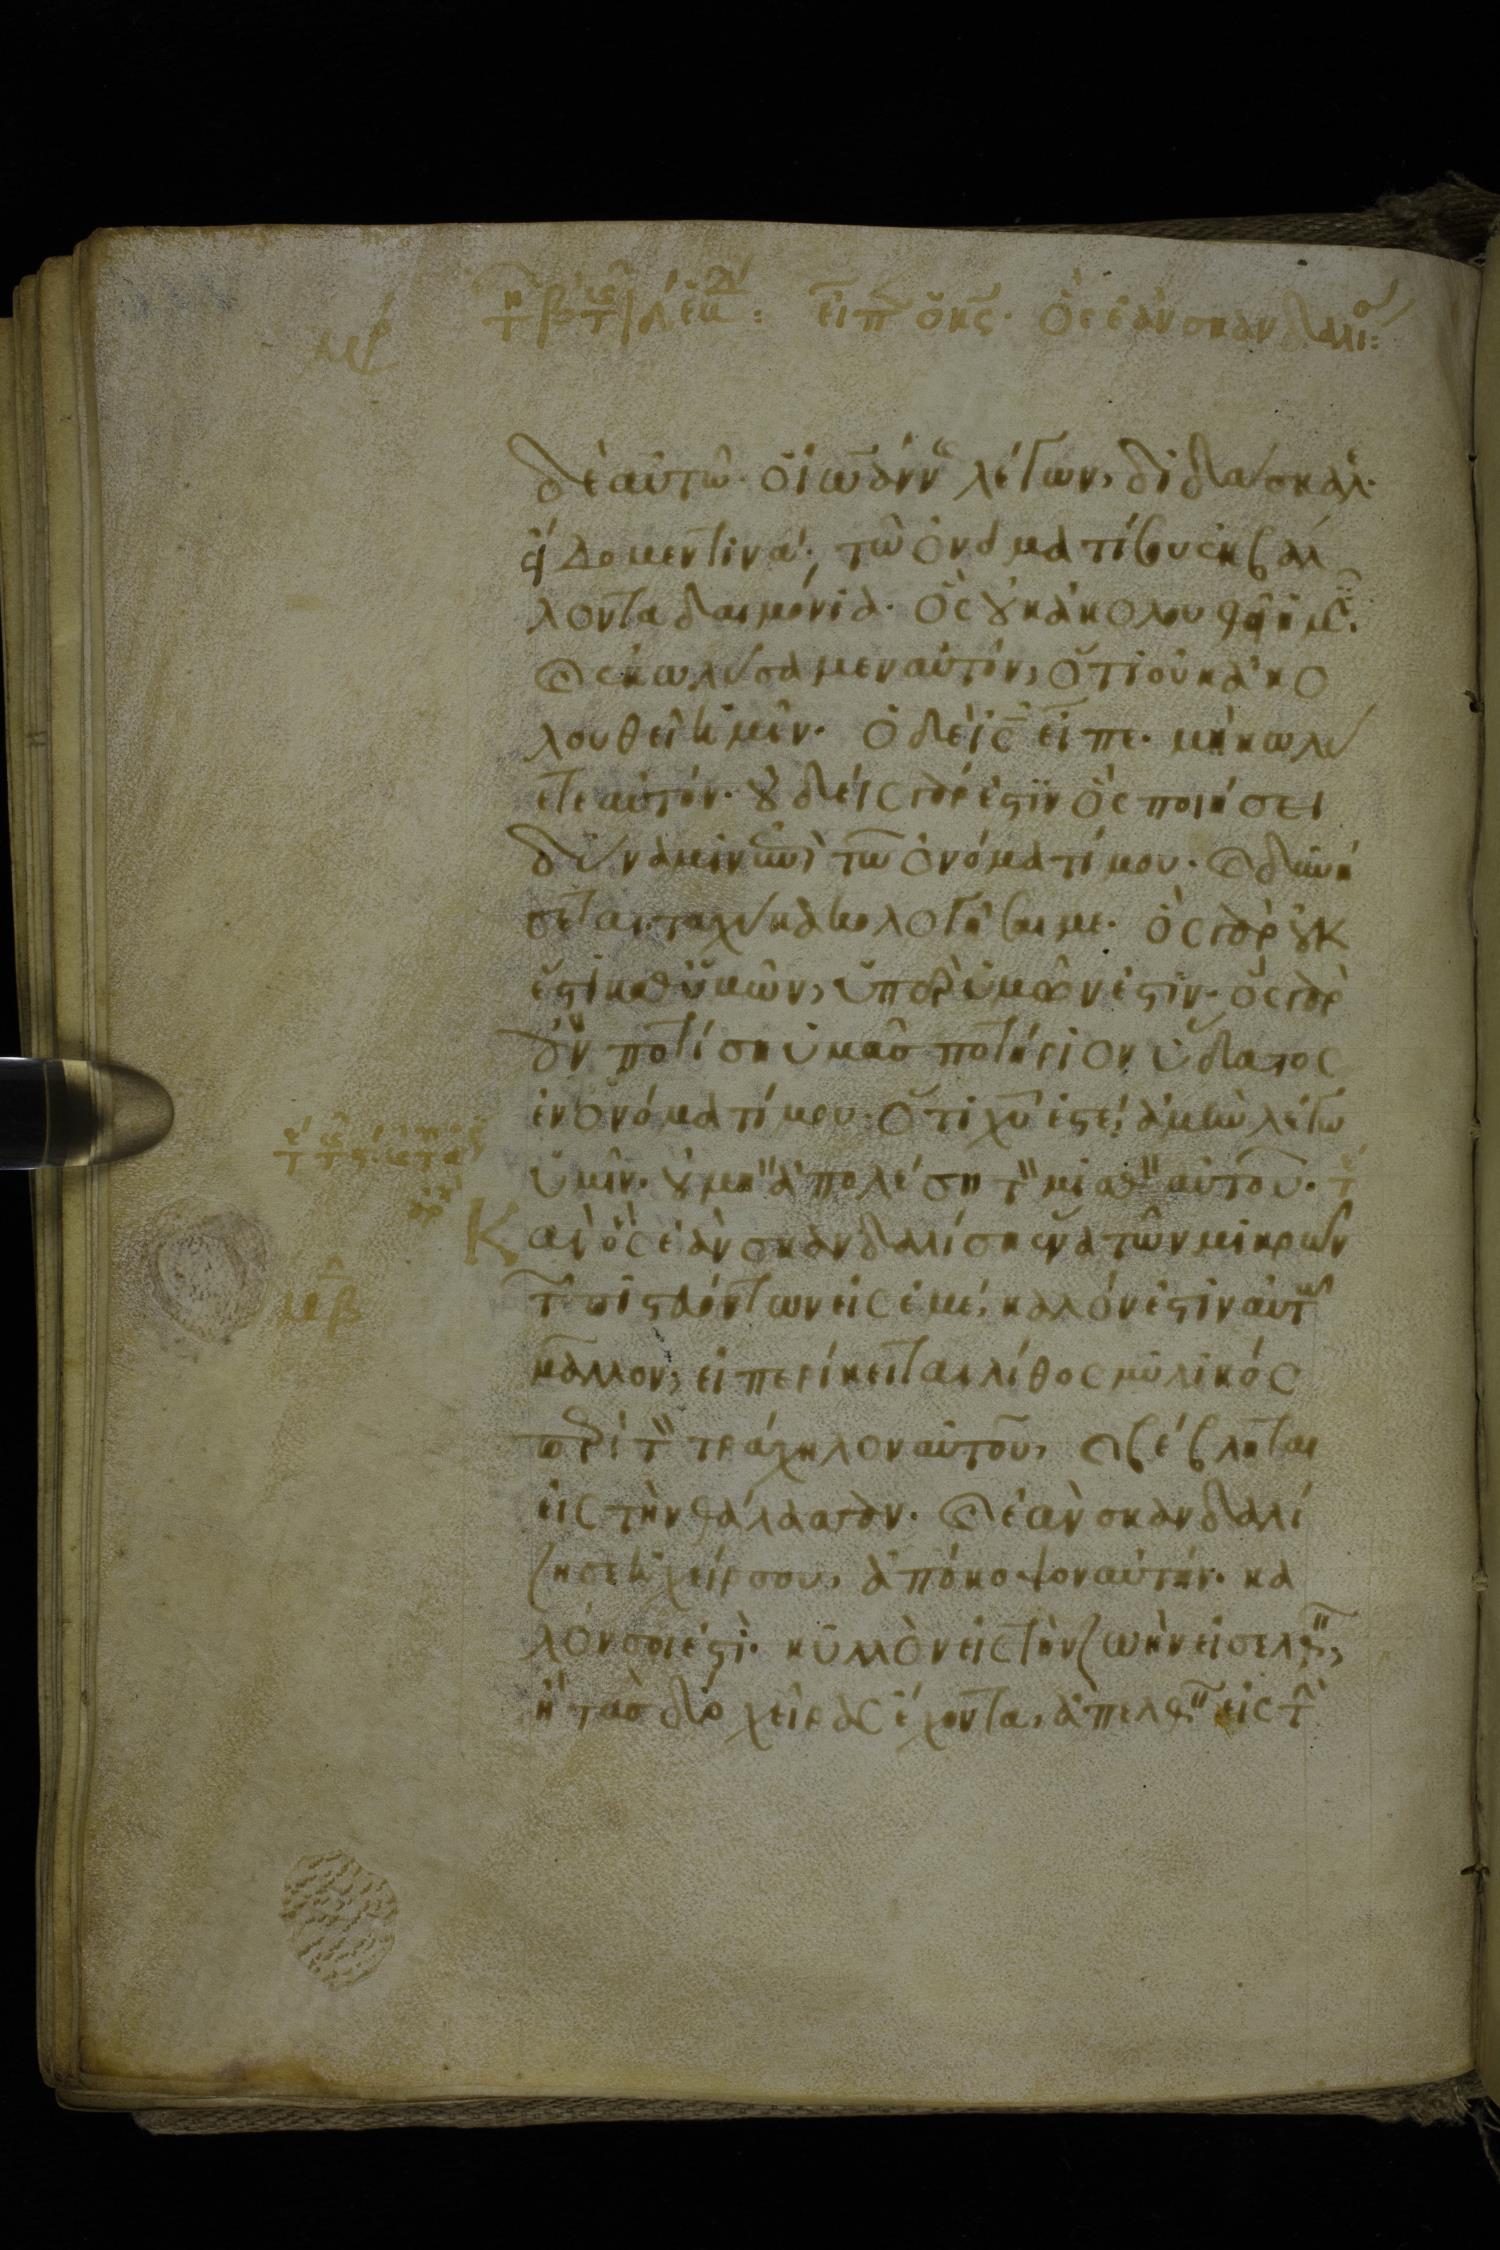 εἶπεν ὁ κς. ὃς ἐὰν σκανδαλίσ:
δὲ αὐτῶ. ὁ ἰωάνν λέγων, διδάσκαλ.
εἴδομεν τινα, τῶ ὀνόματί σου ἐκβάλ
λοντα δαιμόνια. ὃς οὐκ ἀκολουθεῖ ἡμῖν.
καὶ ἐκωλύσαμεν αὐτόν, ὅτι οὐκ ἀκο
λουθεῖ ἡμῖν. ὁ δὲ ις εἶπε. μὴ κωλύ
ετε αὐτόν. οὐδεὶς γάρ ἐστιν ὃς ποιήσει
δύναμιν ἐπὶ τῶ ὀνόματί μου. καὶ δυνή
σεται ταχὺ κακολογῆσαι με. ὃς γὰρ οὐκ
ἔστι καθ ὑμῶν, ὑπὲρ ὑμῶν ἐστιν. ὃς γὰρ
ἂν ποτίση ὑμᾶς ποτήριον ὕδατος
ἐν ὀνόματί μου. ὅτι χυ ἐστέ, ἀμὴν λέγω
ὑμῖν. οὐ μὴ ἀπολέση τὸν μισθὸν αὐτοῦ.
Καὶ ὃς ἐὰν σκανδαλίση ἕνα τῶν μικρῶν
τῶν πιστευόντων εἰς ἐμέ, καλόν ἐστιν αὐτῶ
μᾶλλον, εἰ περίκειται λίθος μυλικός
περὶ τὸν τράχηλον αὐτοῦ, καὶ βέβληται
εἰς τὴν θάλασσαν. καὶ ἐὰν σκανδαλί
ζη σε ἡ χείρ σου, ἀπόκοψον αὐτήν. κα
λόν σοι ἐστί. κυλλὸν εἰς τὴν ζωὴν εἰσελθεῖν,
ἢ τὰς δύο χεῖρας ἔχοντα, ἀπελθεῖν εἰς τὴν
μβ